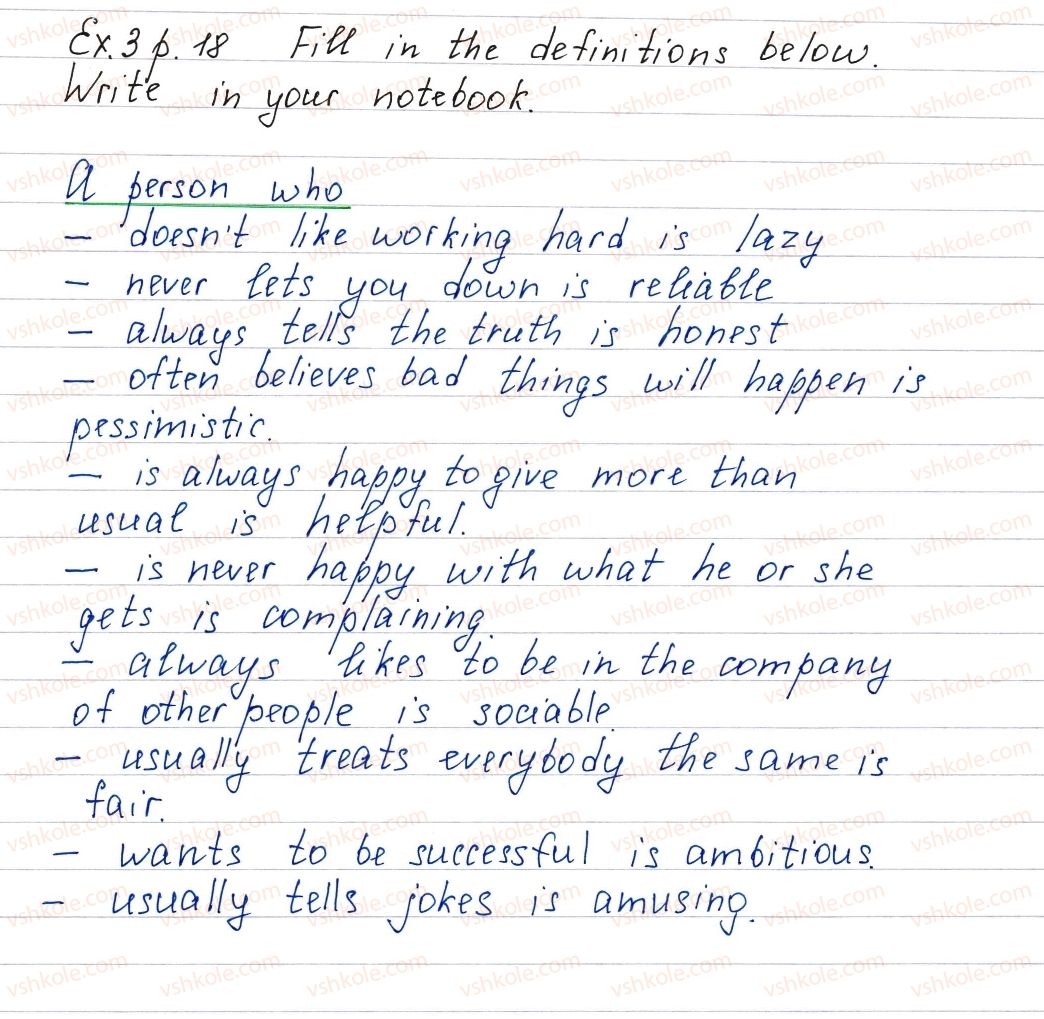 Ex. 3 p. 18 Fill in the definitions below.
Write in your notebook.
A person who
– doesn't like working hard is lazy
– never lets you down is reliable
– always tells the truth is honest
– often believes bad things will happen is
pessimistic.
– is always happy to give more than
usual is helpful.
– is never happy with what he or she
gets is complaining.
– always likes to be in the company
of other people is sociable.
– usually treats everybody the same is
fair.
– wants to be successful is ambitious.
– usually tells jokes is amusing.